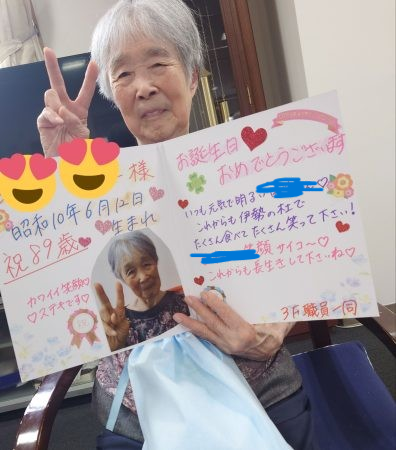 様
昭和10年6月12日
生まれ
祝89歳
カワイイ笑顔♡
♡ステキです♡
お誕生日
おめでとうございます
いつも元気で明るい
これからも伊勢の杜で
たくさん食べてたくさん笑って下さい!
笑顔サイコ〜♡
これからも長生きして下さいね♡
3F職員一同